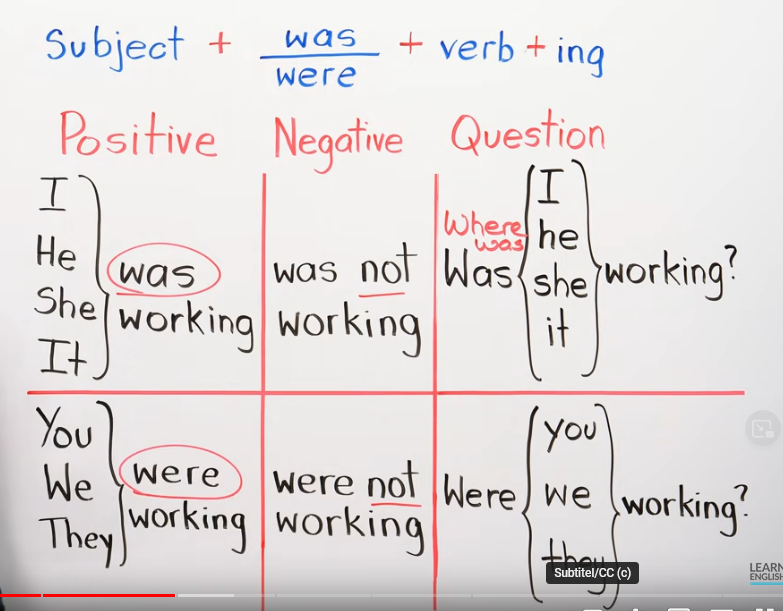 Subject + was + verb + ing
were
Positive Negative Question
I
He
She
It
was
working
was not
working
Where
was
Was
I
he
she
it
working?
You
We
They
were
working
were not
working
Were
you
we
they
working?
Subtitel/CC (c)
LEARN
ENGLISH